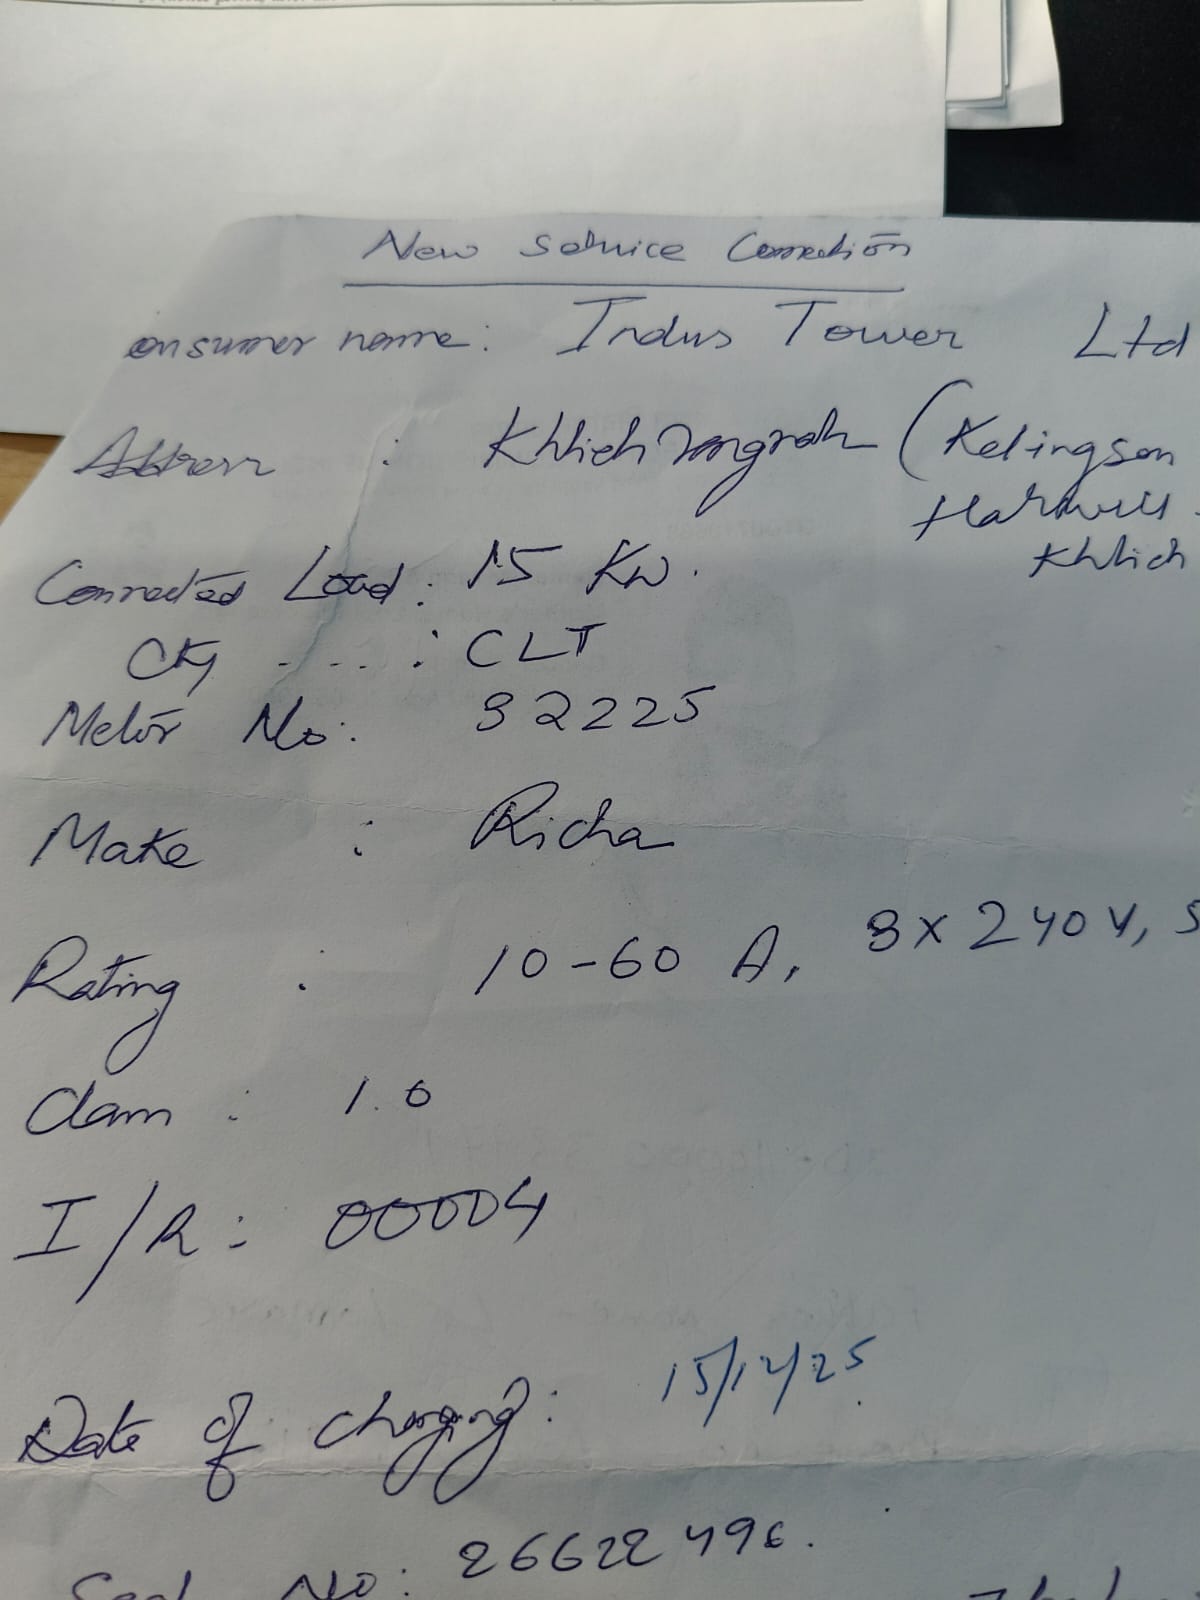 New Service Connection
onsumer name: Indus Tower Ltd
Address : Khliehrangnah (Kelingson
Harwell
Khlieh
Connected Load: 15 Kw.
Ctg ....: CLT
Meter No: 32225
Make : Richa
Rating : 10-60 A, 3x240V, 5
Class : 1.0
I/R: 00004
Date of charging: 15/12/25
Seal No: 26622496.